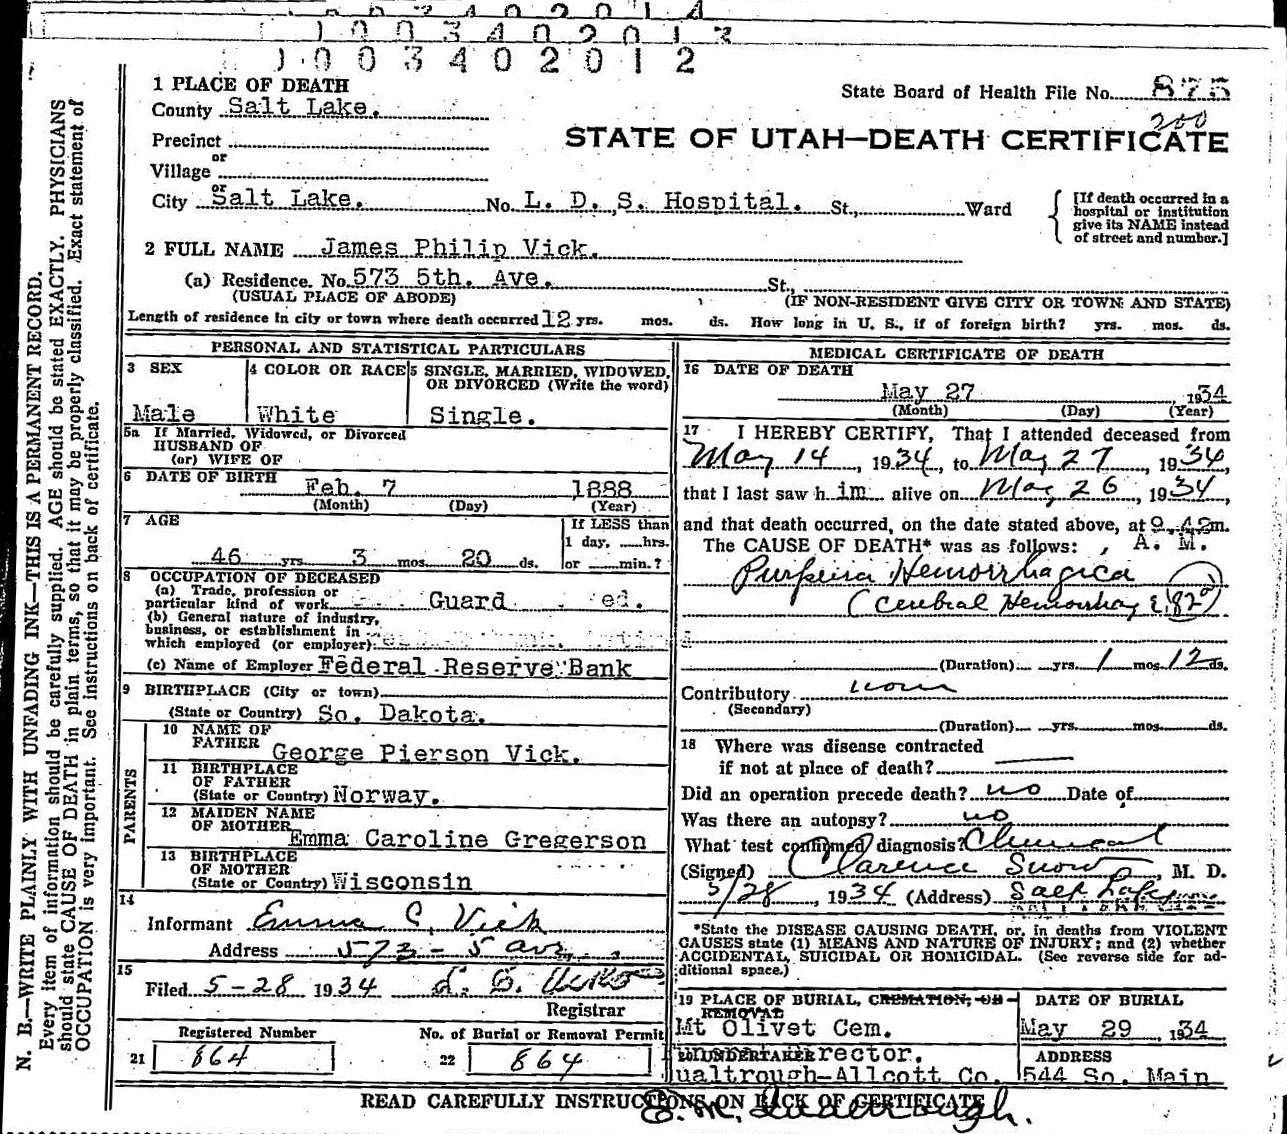 1 0 0 3 4 0 2 0 1 3
1 0 0 3 4 0 2 0 1 2
1 PLACE OF DEATH
State Board of Health File No. 875
County Salt Lake.
200
Precinct
STATE OF UTAH—DEATH CERTIFICATE
or
Village
or
City Salt Lake. No. L. D. S. Hospital. St., Ward
[If death occurred in a
hospital or institution
give its NAME instead
of street and number.]
2 FULL NAME James Philip Vick.
(a) Residence. No. 573 5th. Ave. St.,
(USUAL PLACE OF ABODE) (IF NON-RESIDENT GIVE CITY OR TOWN AND STATE)
Length of residence in city or town where death occurred 12 yrs. mos. ds. How long in U. S., if of foreign birth? yrs. mos. ds.
PERSONAL AND STATISTICAL PARTICULARS
3 SEX
Male
4 COLOR OR RACE
White
5 SINGLE, MARRIED, WIDOWED,
OR DIVORCED (Write the word)
Single.
5a If Married, Widowed, or Divorced
HUSBAND OF
(or) WIFE OF
6 DATE OF BIRTH
Feb. 7 1888
(Month) (Day) (Year)
7 AGE
46 yrs. 3 mos. 20 ds.
If LESS than
1 day, hrs.
or min.?
8 OCCUPATION OF DECEASED
(a) Trade, profession or
particular kind of work Guard ed.
(b) General nature of industry,
business, or establishment in
which employed (or employer):
(c) Name of Employer Federal Reserve Bank
9 BIRTHPLACE (City or town)
(State or Country) So. Dakota.
PARENTS
10 NAME OF
FATHER George Pierson Vick.
11 BIRTHPLACE
OF FATHER
(State or Country) Norway.
12 MAIDEN NAME
OF MOTHER Emma Caroline Gregerson
13 BIRTHPLACE
OF MOTHER
(State or Country) Wisconsin
14
Informant Emma C. Vick
Address 573 - 5 ave.
15
Filed 5-28 1934
Registrar
Registered Number
21 864
No. of Burial or Removal Permit
22 864
MEDICAL CERTIFICATE OF DEATH
16 DATE OF DEATH
May 27 1934
(Month) (Day) (Year)
17 I HEREBY CERTIFY, That I attended deceased from
May 14, 1934, to May 27, 1934
that I last saw him alive on May 26, 1934,
and that death occurred, on the date stated above, at 9.42m.
The CAUSE OF DEATH* was as follows: , A. M.
Purpura Hemorrhagica
(Cerebral Hemorrhag 82
(Duration) yrs. 1 mos. 12 ds.
Contributory
(Secondary)
(Duration) yrs. mos. ds.
18 Where was disease contracted
if not at place of death?
Did an operation precede death? no Date of
Was there an autopsy? no
What test confirmed diagnosis?
(Signed) Clarence Snow, M. D.
5/28, 1934 (Address) Salt Lake
*State the DISEASE CAUSING DEATH, or, in deaths from VIOLENT
CAUSES state (1) MEANS AND NATURE OF INJURY; and (2) whether
ACCIDENTAL, SUICIDAL OR HOMICIDAL. (See reverse side for ad-
ditional space.)
19 PLACE OF BURIAL, CREMATION, OR
REMOVAL
Mt Olivet Cem.
DATE OF BURIAL
May 29, 1934
20 UNDERTAKER rector.
ualtrough-Allcott Co.
ADDRESS
544 So. Main
READ CAREFULLY INSTRUCTIONS ON BACK OF CERTIFICATE
N. B.—WRITE PLAINLY WITH UNFADING INK—THIS IS A PERMANENT RECORD.
Every item of information should be carefully supplied. AGE should be stated EXACTLY. PHYSICIANS
should state CAUSE OF DEATH in plain terms, so that it may be properly classified. Exact statement of
OCCUPATION is very important. See instructions on back of certificate.